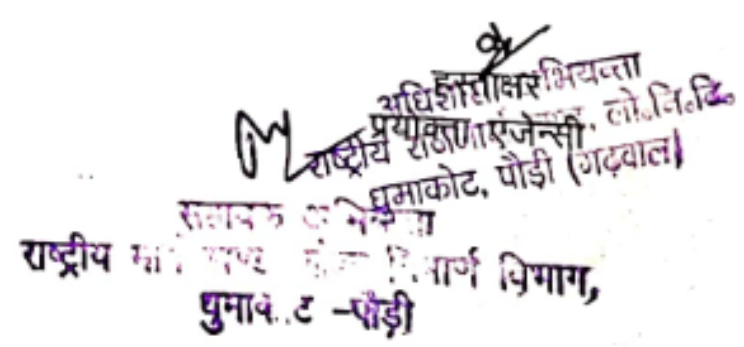 हस्ताक्षर
अधिशासी अभियन्ता
प्रयोक्ता एजेन्सी
राष्ट्रीय लो.नि.वि.
धुमाकोट, पौड़ी (गढ़वाल)
सहायक अभियन्ता
राष्ट्रीय निर्माण विभाग,
धुमाकोट -पौड़ी